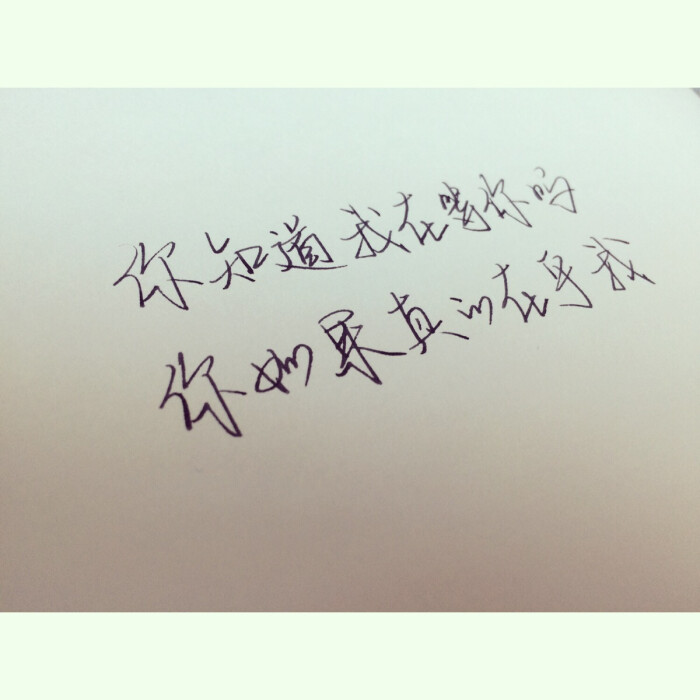 你知道我在等你吗
你如果真的在乎我